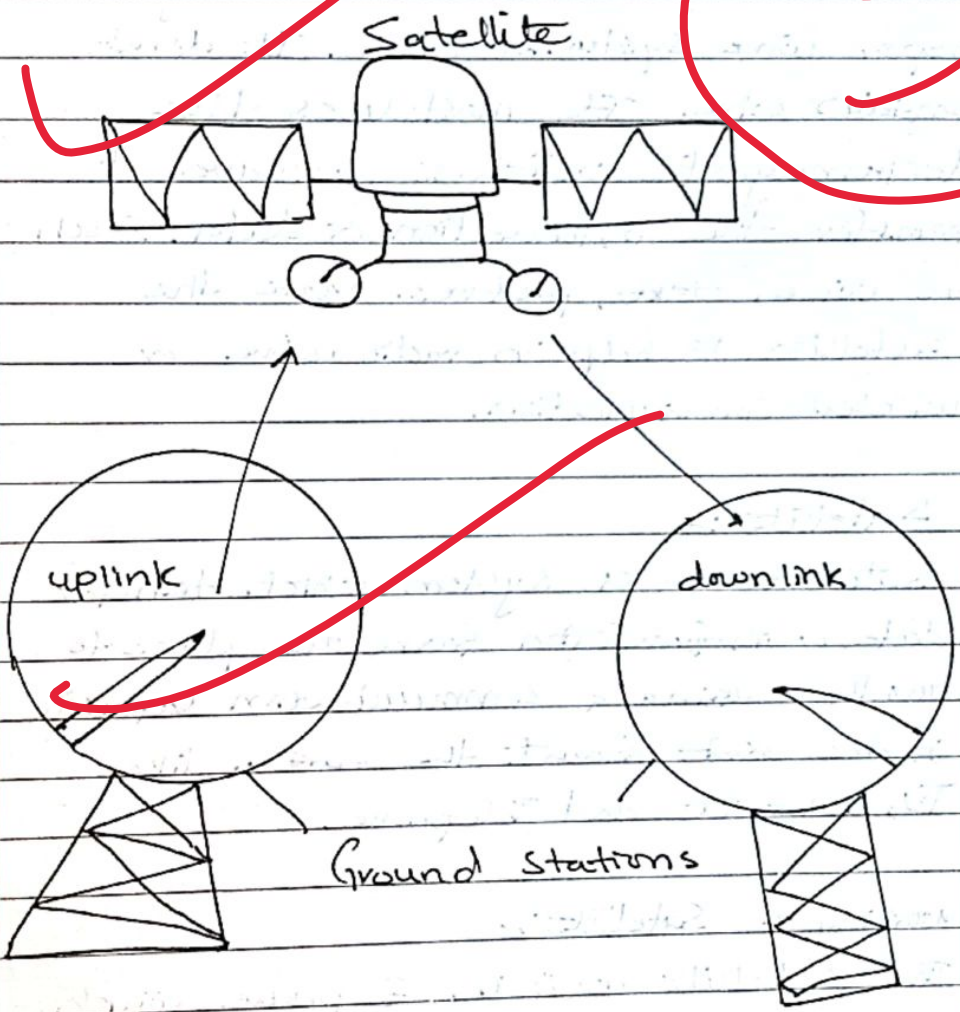 Satellite
uplink
downlink
Ground stations